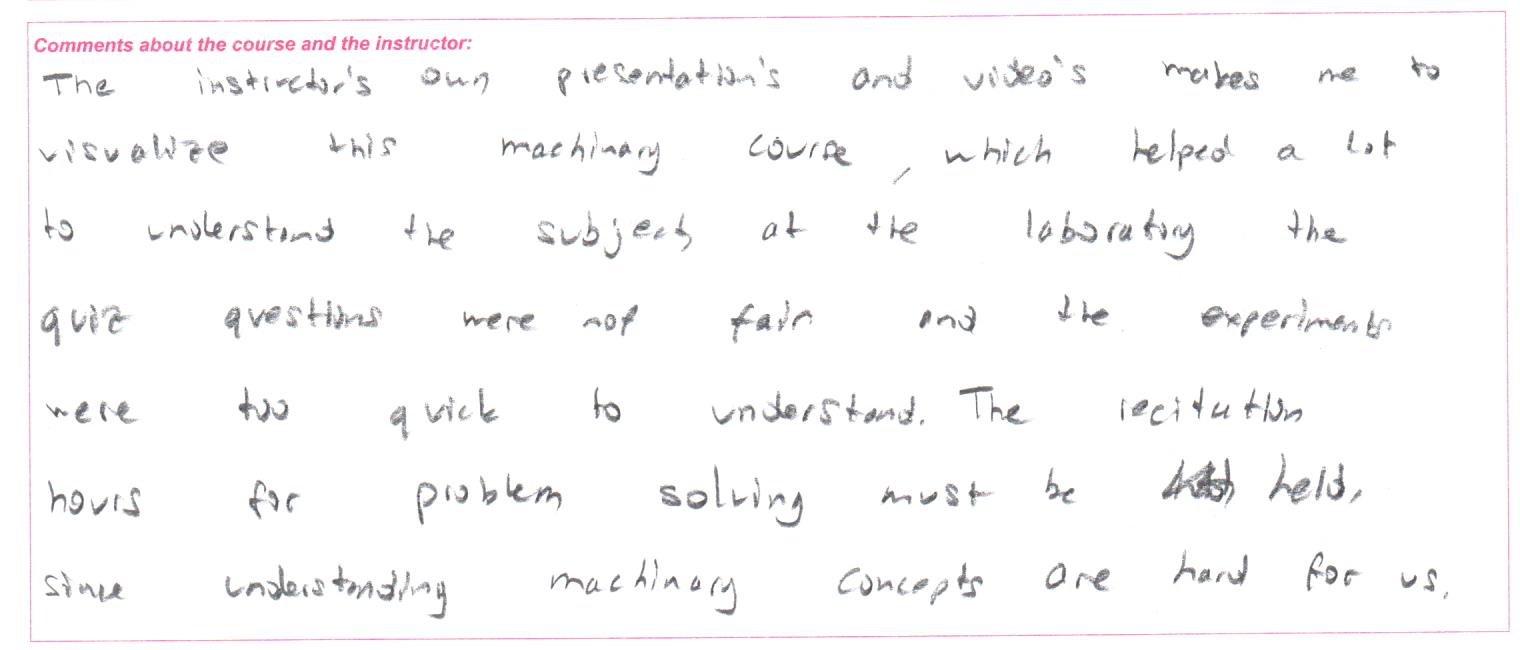 Comments about the course and the instructor:
The instructor's own presentation's and video's makes me to
visualize this machinary course, which helped a lot
to understand the subject at the laboratory the
quiz questions were not fair and the experiments
were too quick to understand. The recitation
hours for problem solving must be held,
since understanding machinary concepts are hard for us.